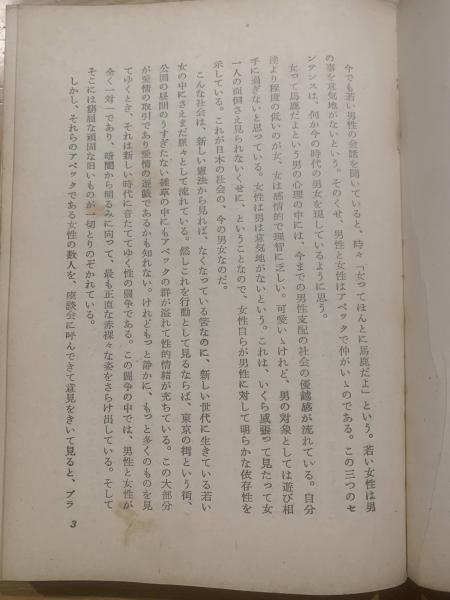 今でも若い男性の会話を聞いていると、時々「女ってほんとに馬鹿だよ」という。若い女性は男
の事を意気地がないという。そのくせ、男性と女性はアベックで仲がいゝのである。この三つのセ
ンテンスは、何か今の時代の男女を現しているように思う。
女って馬鹿だよという男の心理の中には、今までの男性支配の社会の優越感が流れている。自分
達より程度の低いのが女、女は感情的で理智に乏しい。可愛いゝけれど、男の対象としては遊び相
手に過ぎないと思っている。女性は男は意気地がないという。これは、いくら威張って見たって女
一人の面倒さえ見られないくせに、ということなので、女性自らが男性に対して明らかな依存性を
示している。これが日本の社会の、今の男女なのだ。
こんな社会は、新しい憲法から見れば、なくなっている筈なのに、新しい世代に生きている若い
女の中にさえまだ脈々として流れている。然しこれを行動として見るならば、東京の街という街、
公園の昼間のうすぎたない雑草の中にもアベックの群が溢れて性的情緒が充ちている。この大部分
が愛情の取引であり愛情の遊戯であるかも知れない。けれどもっと静かに、もっと多くのものを見
てゆくとき、それは新しい時代に音たててゆく性の闘争である。この闘争の中では、男性と女性が
全く一対一であり、暗闇から明るみに向って、最も正直な赤裸々な姿をさらけ出している。そして
そこには窮屈な頑固な旧いものが一切とりのぞかれている。
しかし、それらのアベックである女性の数人を、座談会に呼んできて意見をきいて見ると、プラ
3